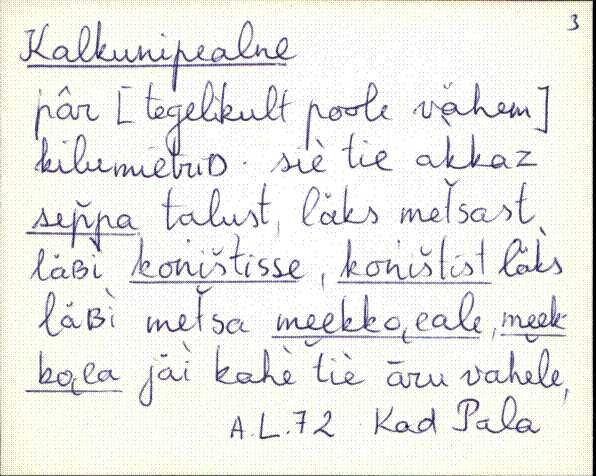 3
Kalkunipealne
pâr [tegelikult poole vähem]
kilumètrìD. siè tie akkaz
sep̌pa talust, läks met̆sast
läʙì koništisse, koništist läks
läʙì met̆sa mĕekko̬eale, mĕek-
ko̬ea jäì kahè tiè āru vahele,
A.L.72 Kad Pala